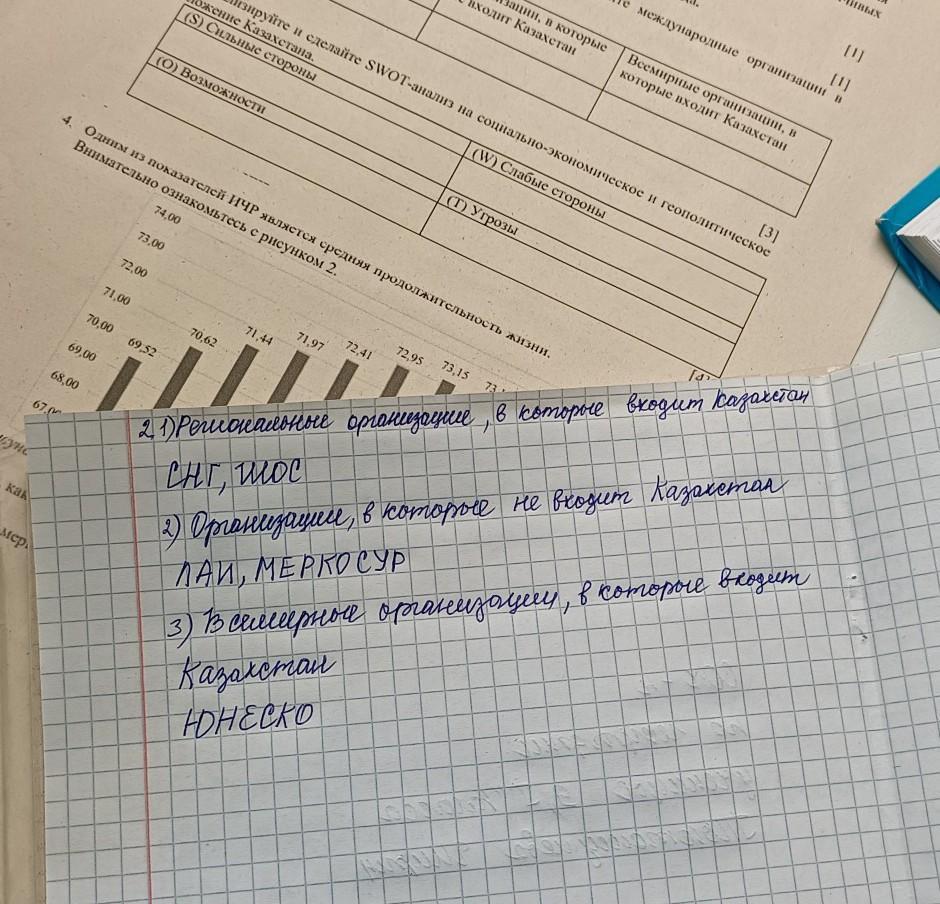 чивых
[1]
те международные организации в
[1]
зации, в которые
входит Казахстан
Всемирные организации, в
которые входит Казахстан
лизируйте и сделайте SWOT-анализ на социально-экономическое и геополитическое
ложение Казахстана.
[3]
(S) Сильные стороны
(W) Слабые стороны
(O) Возможности
(T) Угрозы
4. Одним из показателей ИЧР является средняя продолжительность жизни.
Внимательно ознакомьтесь с рисунком 2.
74,00
73,00
72,00
71,00
70,00
69,00
68,00
69,52
70,62
71,44
71,97
72,41
72,95
73,15
2 1) Региональные организации, в которые входит Казахстан
СНГ, ШОС
2) Организации, в которые не входит Казахстан
ЛАИ, МЕРКОСУР
3) Всемирные организации, в которые входит
Казахстан
ЮНЕСКО